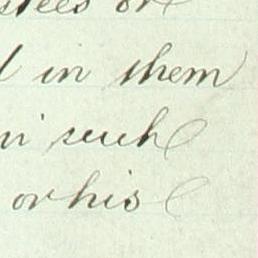 or
in them
such
or his